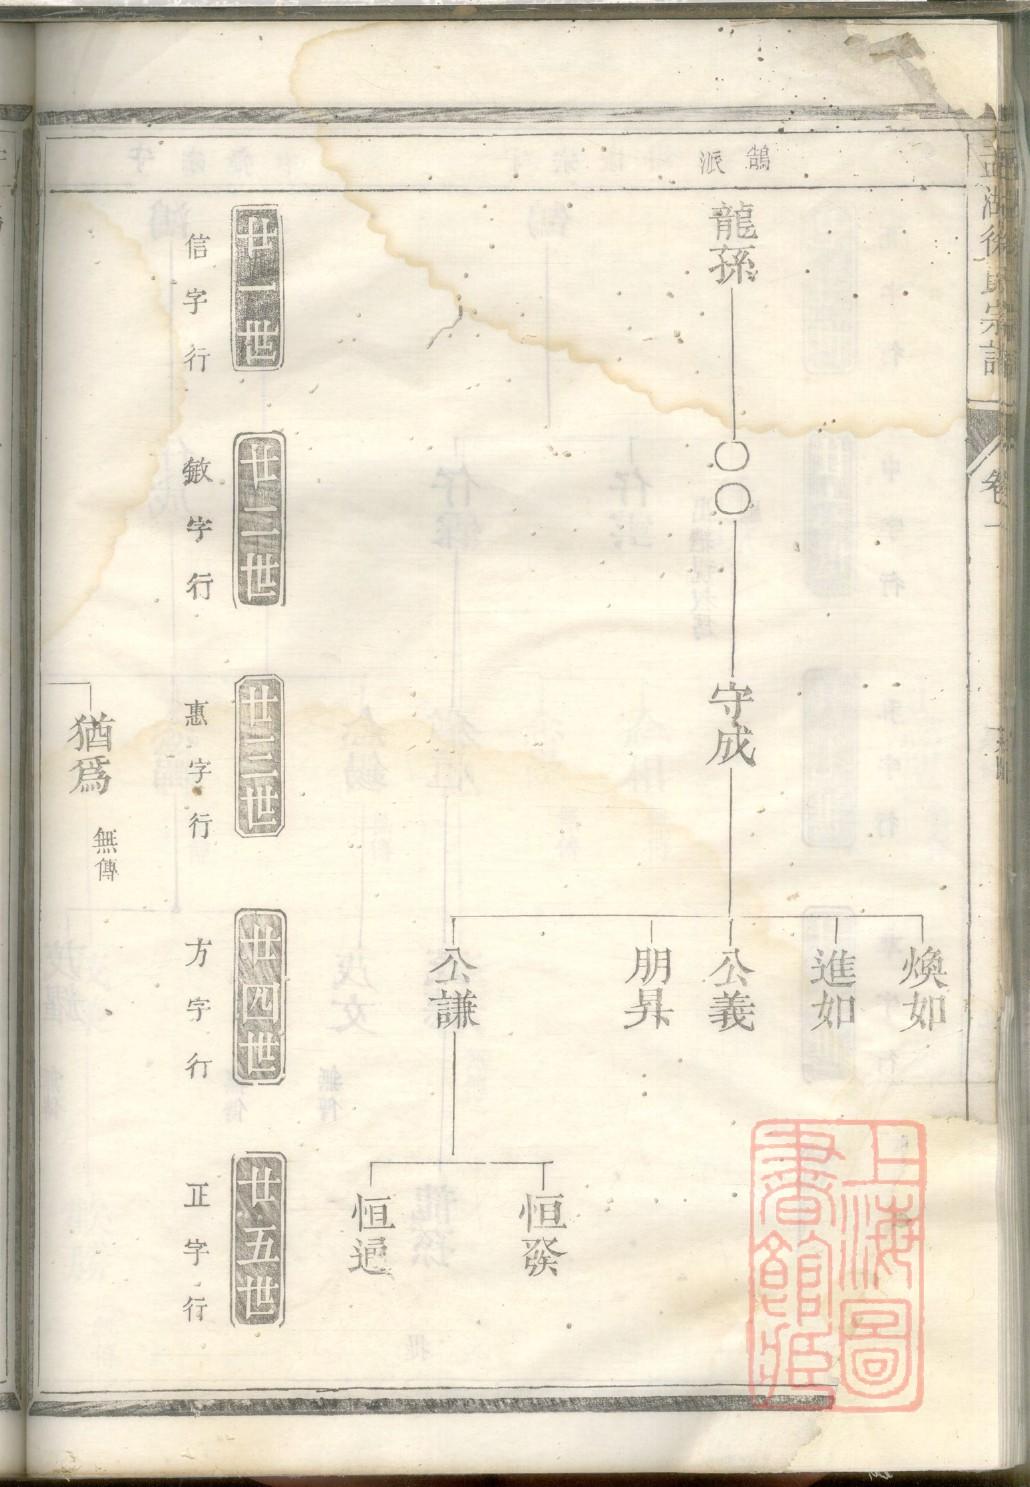 鵠派
龍孫
〇〇
守成
煥如
進如
公義
朋昇
公謙
恒發
恒逷
廿一世
信字行
廿二世
敏字行
廿三世
惠字行
廿四世
方字行
廿五世
正字行
猶爲
無傳
湖徐氏宗譜
卷一
上海圖書館藏